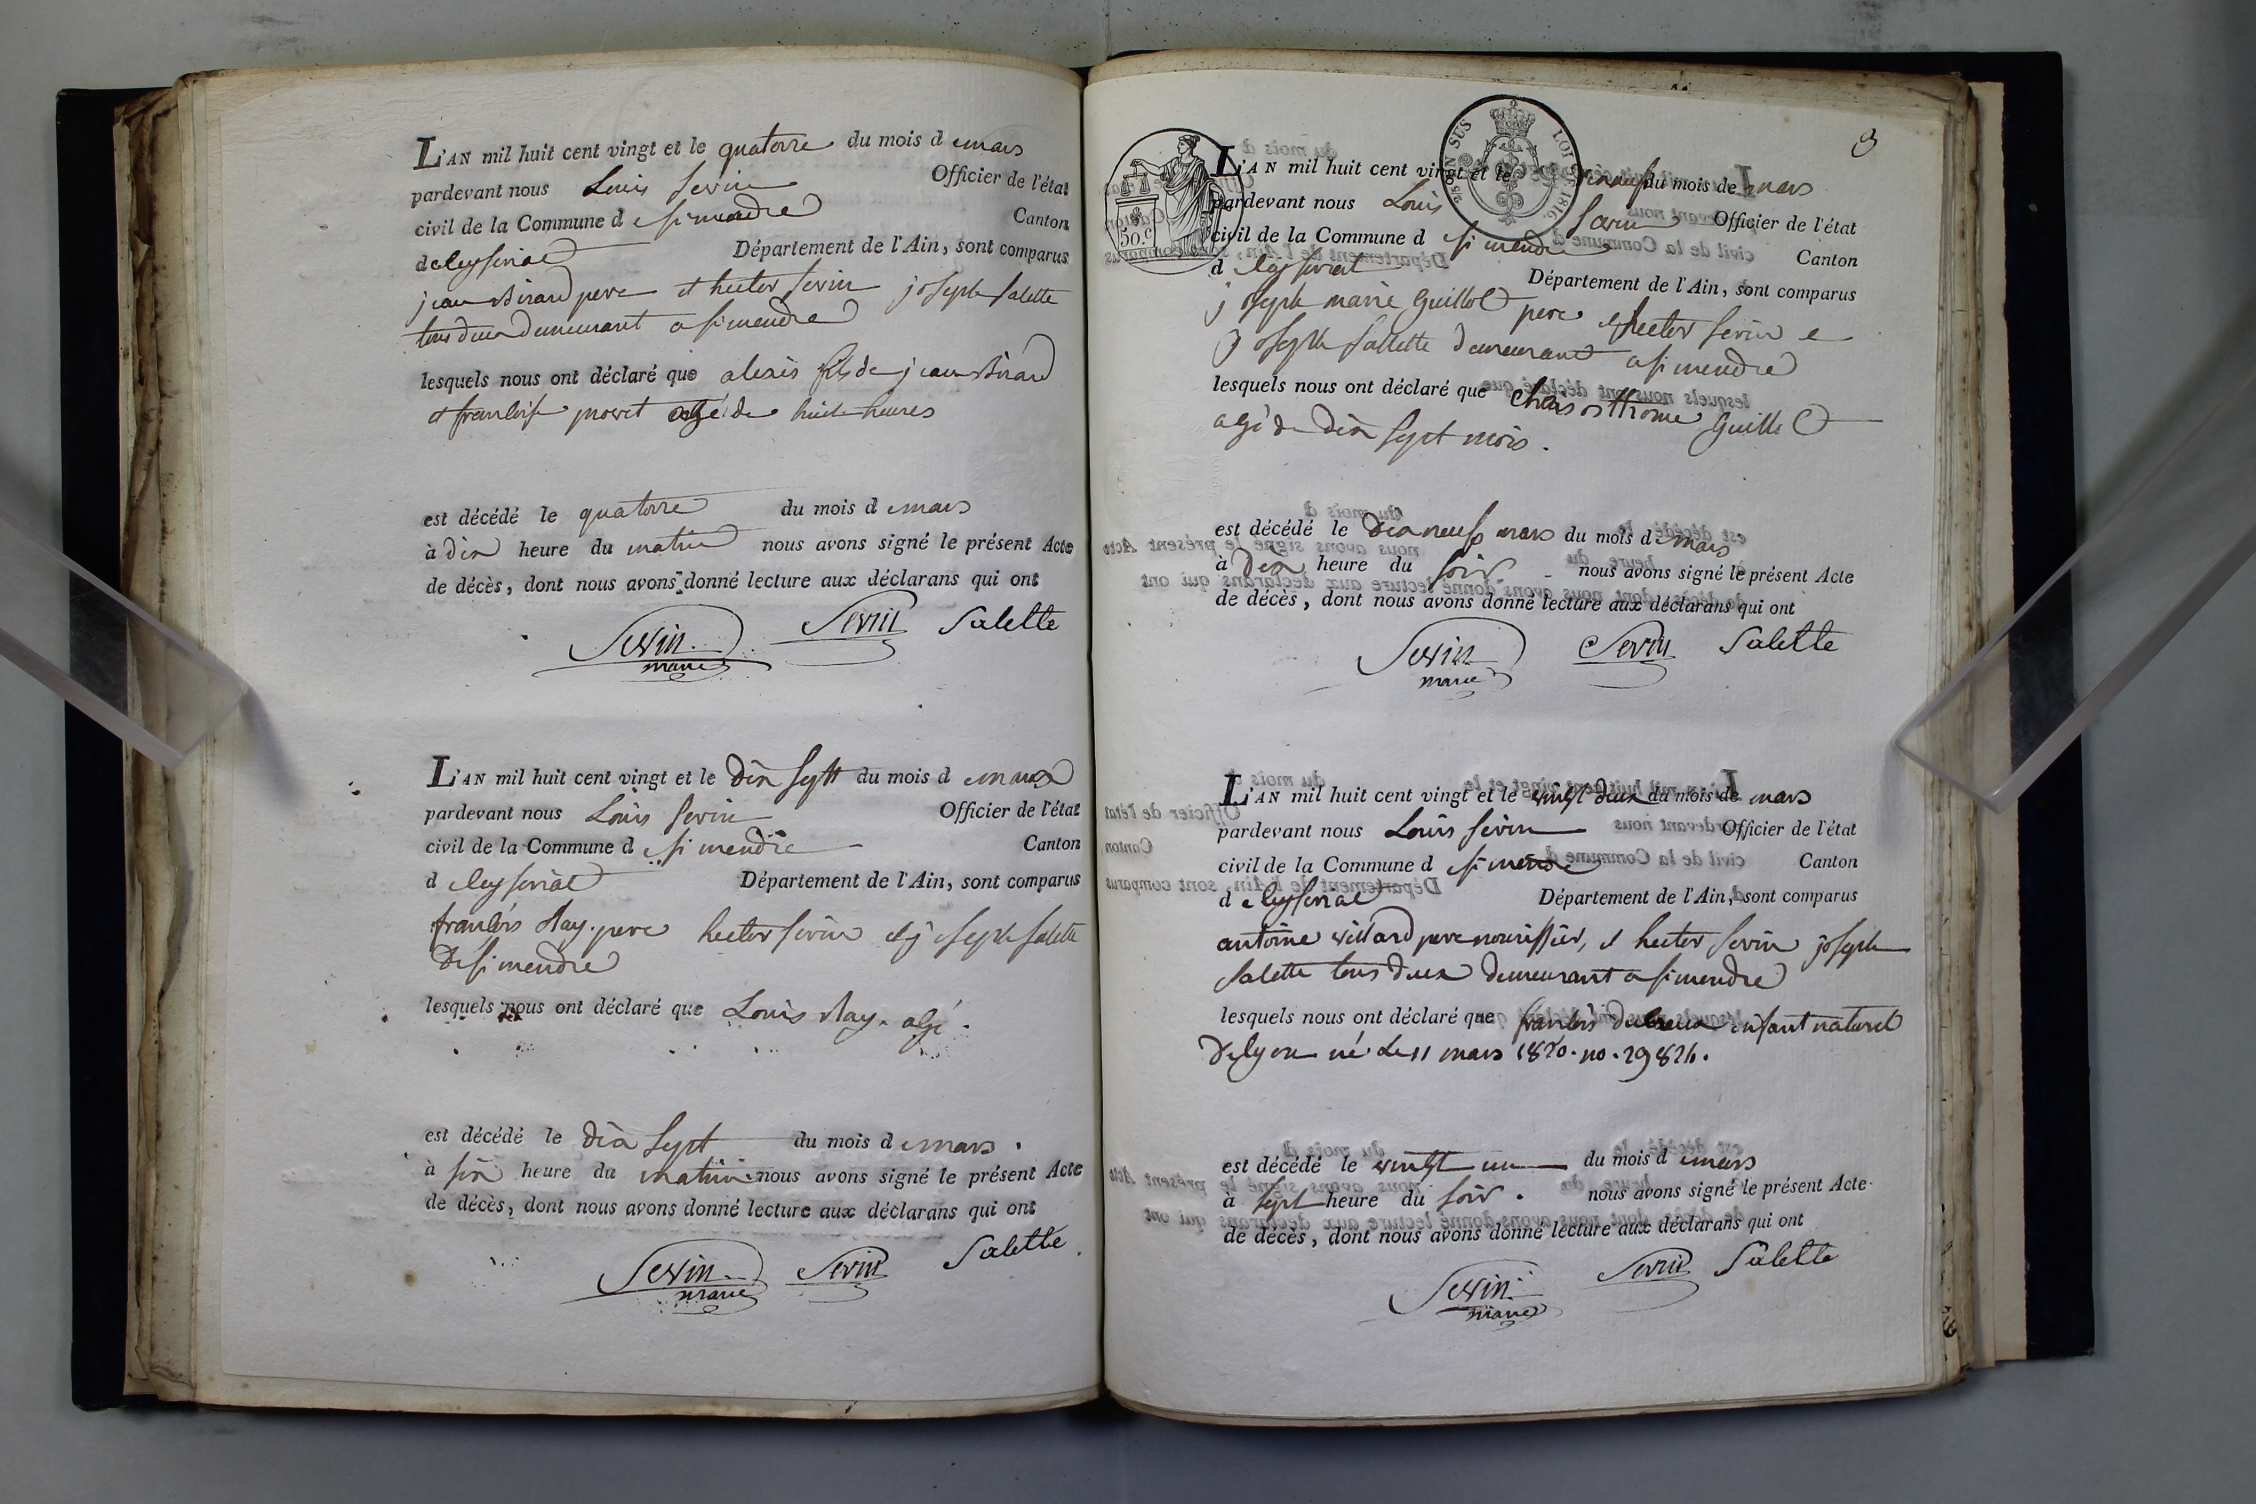 L'AN mil huit cent vingt et le quatorze du mois d e mars
pardevant nous Louis Sevin Officier de l'état
civil de la Commune d e Simandre Canton
de Ceyseriat Département de l'Ain, sont comparus
jean Birard pere et hector Sevin joseph Salette
tous deux demeurant a Simendre
lesquels nous ont déclaré que alexis fils de jean Birard
et francoise moret agé de huit heures
est décédé le quatorze du mois d e mars
à dix heure du matin nous avons signé le présent Acte
de décès, dont nous avons donné lecture aux déclarans qui ont
Sevin Sevin Salette
maire
L'AN mil huit cent vingt et le dix Sept du mois d e mars
pardevant nous Louis Sevin Officier de l'état
civil de la Commune d e Simendre Canton
d e Ceyseriat Département de l'Ain, sont comparus
francois Ray pere hector Sevin et joseph Salette
De Simendre
lesquels nous ont déclaré que Louis Ray. agé.
est décédé le dix Sept du mois d e mars.
à Six heure du matin nous avons signé le présent Acte
de décès, dont nous avons donné lecture aux déclarans qui ont
Sevin Sevin Salette
maire
3
50.c
2/5 EN SUS LOI DE 1816.
L'AN mil huit cent vingt et le dixneuf du mois de mars
pardevant nous Louis Sevin Officier de l'état
civil de la Commune d e Simendre Canton
d e Ceyseriat Département de l'Ain, sont comparus
joseph marie Guillot pere et hector Sevin e
joseph Sallette demeurant a Simendre
lesquels nous ont déclaré que Guillot
agé de Dix Sept mois.
est décédé le Dixneuf mars du mois d e mars
à Dix heure du Soir nous avons signé le présent Acte
de décès, dont nous avons donné lecture aux déclarans qui ont
Sevin Sevin Salette
maire
L'AN mil huit cent vingt et le vingt deux du mois de mars
pardevant nous Louis Sevin Officier de l'état
civil de la Commune d e Simendre Canton
d e Ceyseriat Département de l'Ain, sont comparus
antoine villard pere nourissier, et hector Sevin joseph
Salette tous deux demeurant a Simendre
lesquels nous ont déclaré que francois enfant naturel
De lyon né Le 11 mars 1820. no. 29826.
est décédé le vingt un du mois d e mars
à Sept heure du Soir. nous avons signé le présent Acte
de décès, dont nous avons donné lecture aux déclarans qui ont
Sevin Sevin Salette
maire